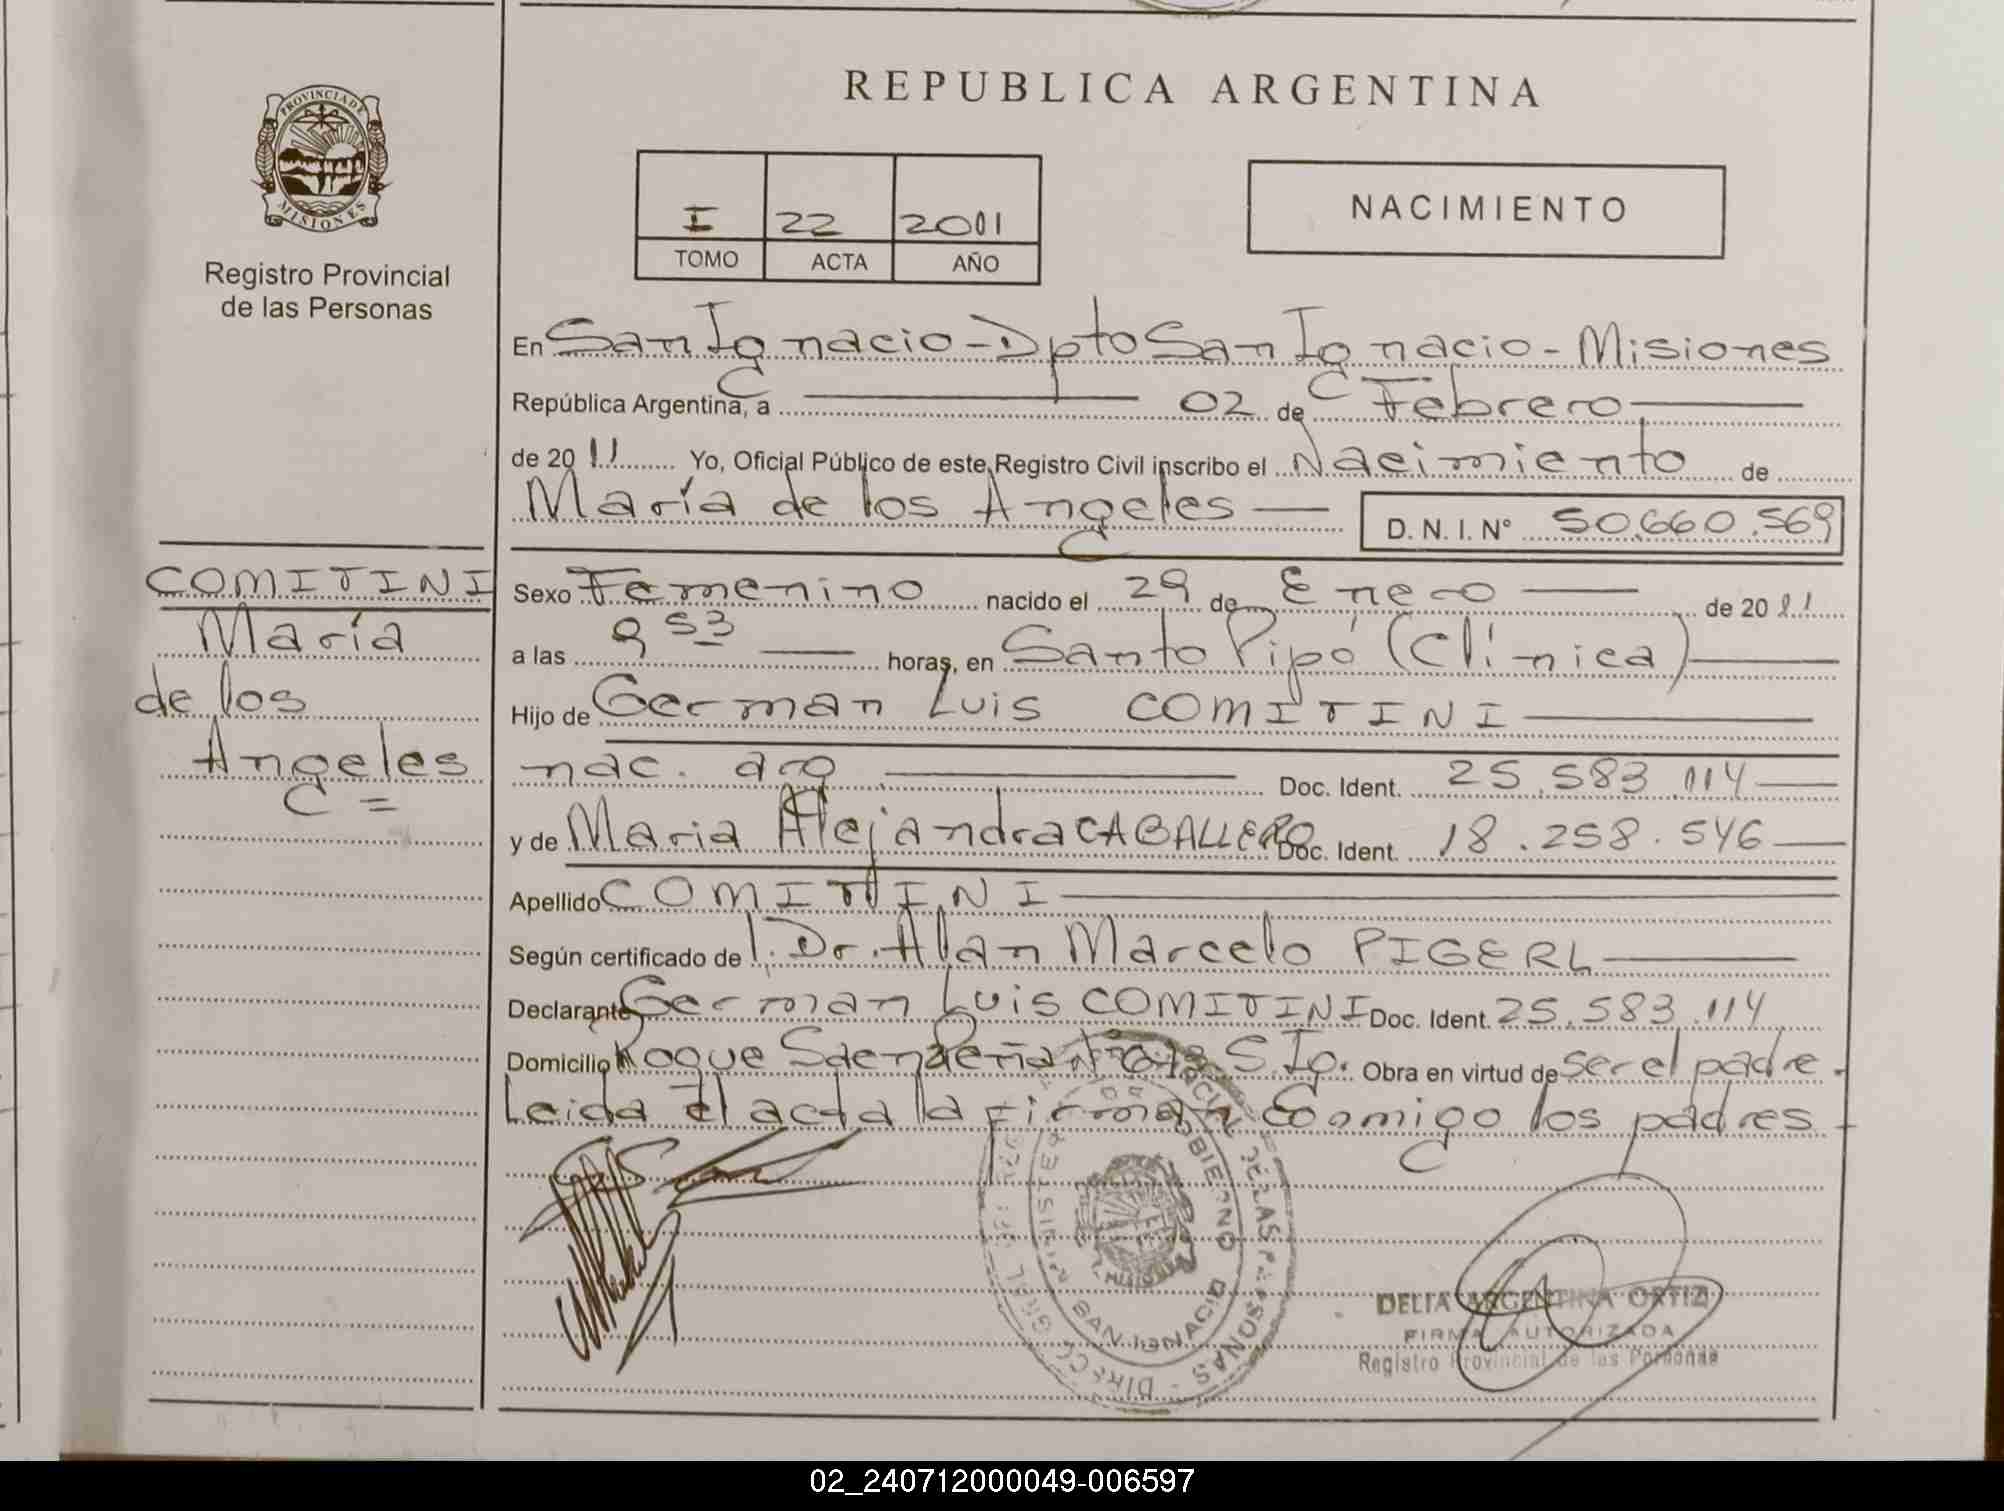 PROVINCIA DE
MISIONES
Registro Provincial
de las Personas
COMITINI
María
de los
Angeles =
REPUBLICA ARGENTINA
I 22 2011
TOMO ACTA AÑO
NACIMIENTO
En San Ignacio - Dpto San Ignacio - Misiones
República Argentina, a 02 de Febrero
de 2011 Yo, Oficial Público de este Registro Civil inscribo el Nacimiento de
María de los Angeles D. N. I. Nº 50.660.569
Sexo Femenino nacido el 29 de Enero de 2011
a las 9 53 horas, en Santo Pipó (Clínica)
Hijo de German Luis COMITINI
nac. arg Doc. Ident. 25.583.114
y de Maria Alejandra CABALLERO Doc. Ident. 18.258.546
Apellido COMITINI
Según certificado de l. Dr. Alan Marcelo PIGERL
Declarante German Luis COMITINI Doc. Ident. 25.583.114
Domicilio Roque Saenz Peña S. Ig. Obra en virtud de ser el padre.
Leida el acta la firman Conmigo los padres
SAN IGNACIO
DELIA ARGENTINA ORTIZ
FIRMA AUTORIZADA
Registro Provincial de las Personas
02_240712000049-006597